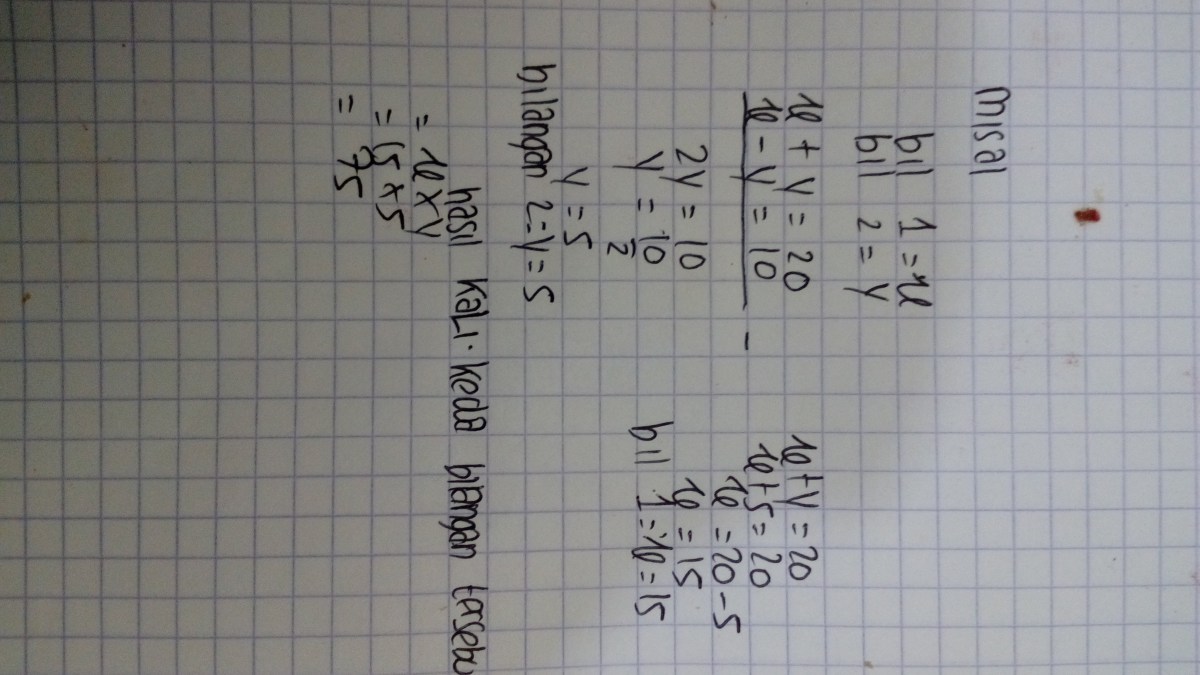 Misal
bil 1 = x
bil 2 = y
x + y = 20
x - y = 10 -
2y = 10
y = 10/2
y = 5
bilangan 2 = y = 5
x + y = 20
x + 5 = 20
x = 20 - 5
x = 15
bil 1 = x = 15
hasil kali keda bilangan tersebu
= x x y
= 15 x 5
= 75